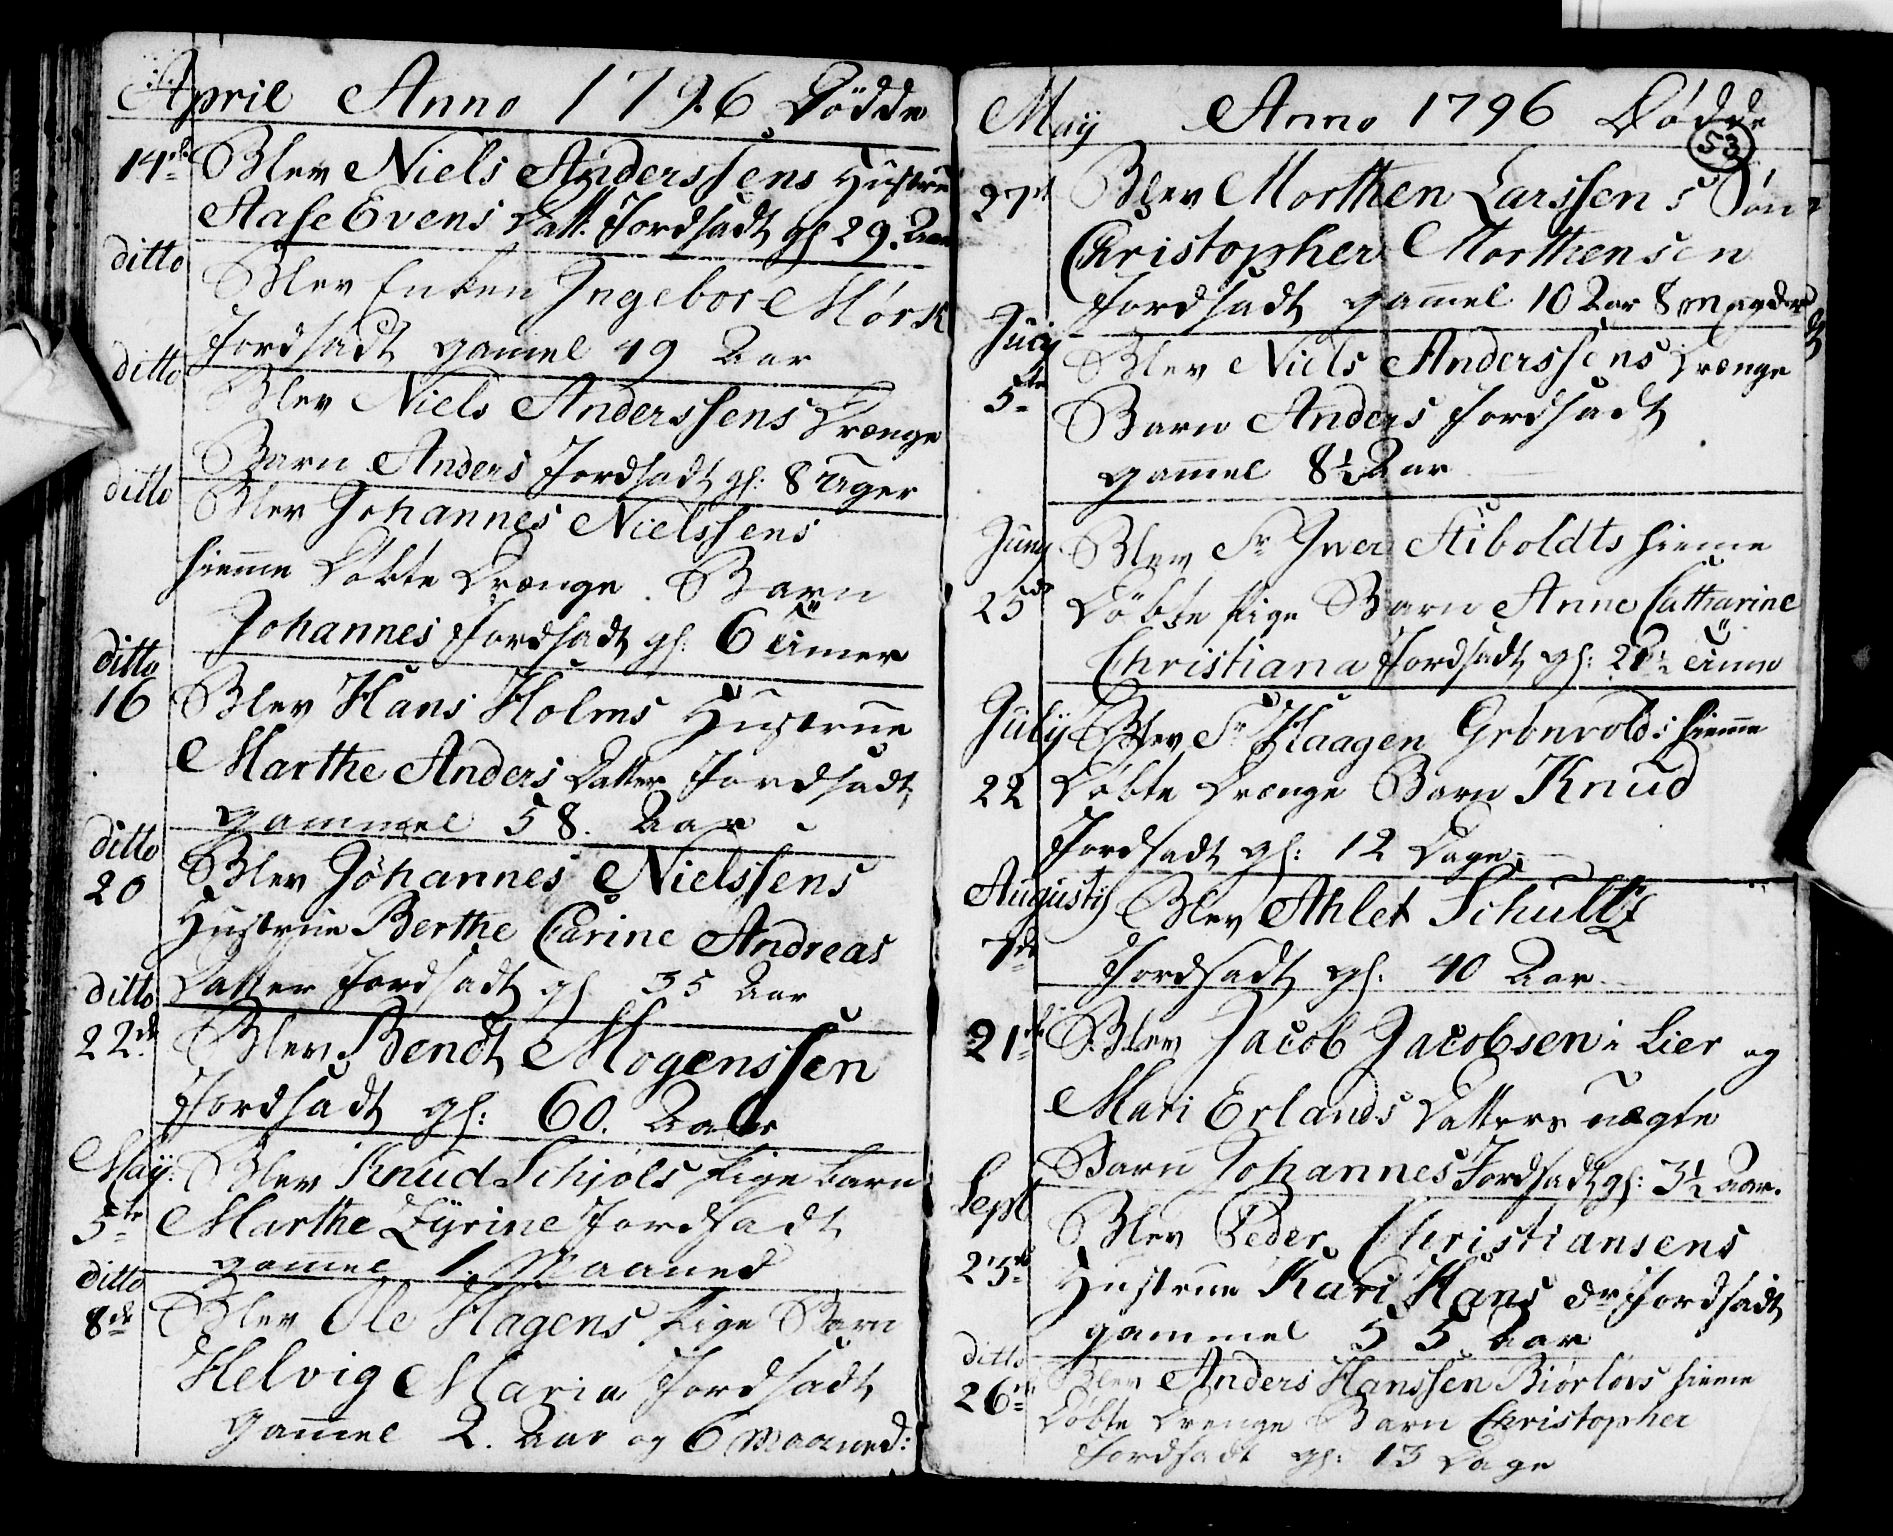 April Anno 1796 Dödde
14de Blev Niels Anderssens Hustrue
Aase Evens Datt. Jordsadt gl 29. Aar
ditto Blev Enken Ingebor Mørk
Jordsadt gamel 49 Aar
ditto Blev Niels Anderssens Drænge
Barn Anders Jordsadt gl: 8 Uger
ditto Blev Johannes Nielssens
hiemme Døbte Drænge Barn
Johannes Jordsadt gl: 6 Timer
ditto
16 Blev Hans Holms Hustrue
Marthe Anders Datter Jordsadt
gammel 58. Aar
ditto
20 Blev Johannes Nielssens
Hustrue Berthe Carine Andreas
Datter Jordsadt gl 35 Aar
ditto
22de Blev Bendt Mogenssen
Jordsadt gl: 60. Aar
May: Blev Knud Schjöls Pige barn
5te Marthe Zyrine Jordsadt
gammel 1. Maaned
ditto
8de Blev Ole Hagens Pige Barn
Helvig Maria Jordsadt
gammel 2. Aar og 6 Maaned:
May Anno 1796 Dødde
53
27de Blev Morthen Larssens Søn
Christopher Morthensen
Jordsadt gammel 10 Aar 8 Magder
Blev Niels Anderssens Drænge
5te Barn Anders Jordsadt
gammel 8½ Aar
Juny Blev Sr Iver Stiboldts hieme
25de Döbte Pige Barn Anne Catharine
Christiana Jordsadt gl: Time
July Blev Sr Haagen Grönvolds hieme
22 Döbte Drænge Barn Knud
Jordsadt gl: 12 Dage
Augustij Blev Ahlet Schultz
7de Jordsadt gl: 40 Aar
21de Blev Jacob Jacobsen i Lier og
Mari Erlands Datters uægte
Barn Johannes Jordsadt gl: 3½ Aar.
Sept Blev Peder Christiansens
25de Hustrue Kari Hans Dr Jordsadt
gammel 55 Aar
ditto
26de Blev Anders Hanssen Biørløvs hieme
Döbte Drenge Barn Christopher
Jordsadt gl: 13 Dage